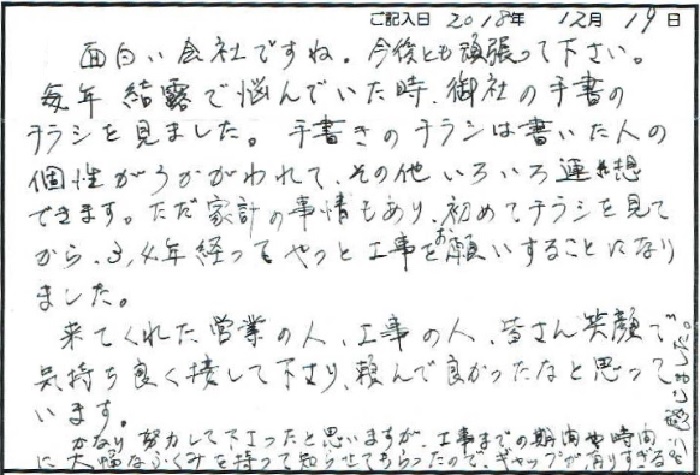 ご記入日 2018年 12月 19日
面白い会社ですね。今後とも頑張って下さい。
毎年 結露で悩んでいた時、御社の手書の
チラシを見ました。手書きのチラシは書いた人の
個性がうかがわれて、その他いろいろ連想
できます。ただ家計の事情もあり、初めてチラシを見て
から、3,4年経ってやっと工事をお願いすることになり
ました。
来てくれた営業の人、工事の人、皆さん笑顔で
気持ち良く接して下さり、頼んで良かったなと思って
います。
かなり努力して下さったと思いますが、工事までの期間や時間
に大幅なふくみを持って知らせてもらったのでギャップが有りすぎるよう
感じました。